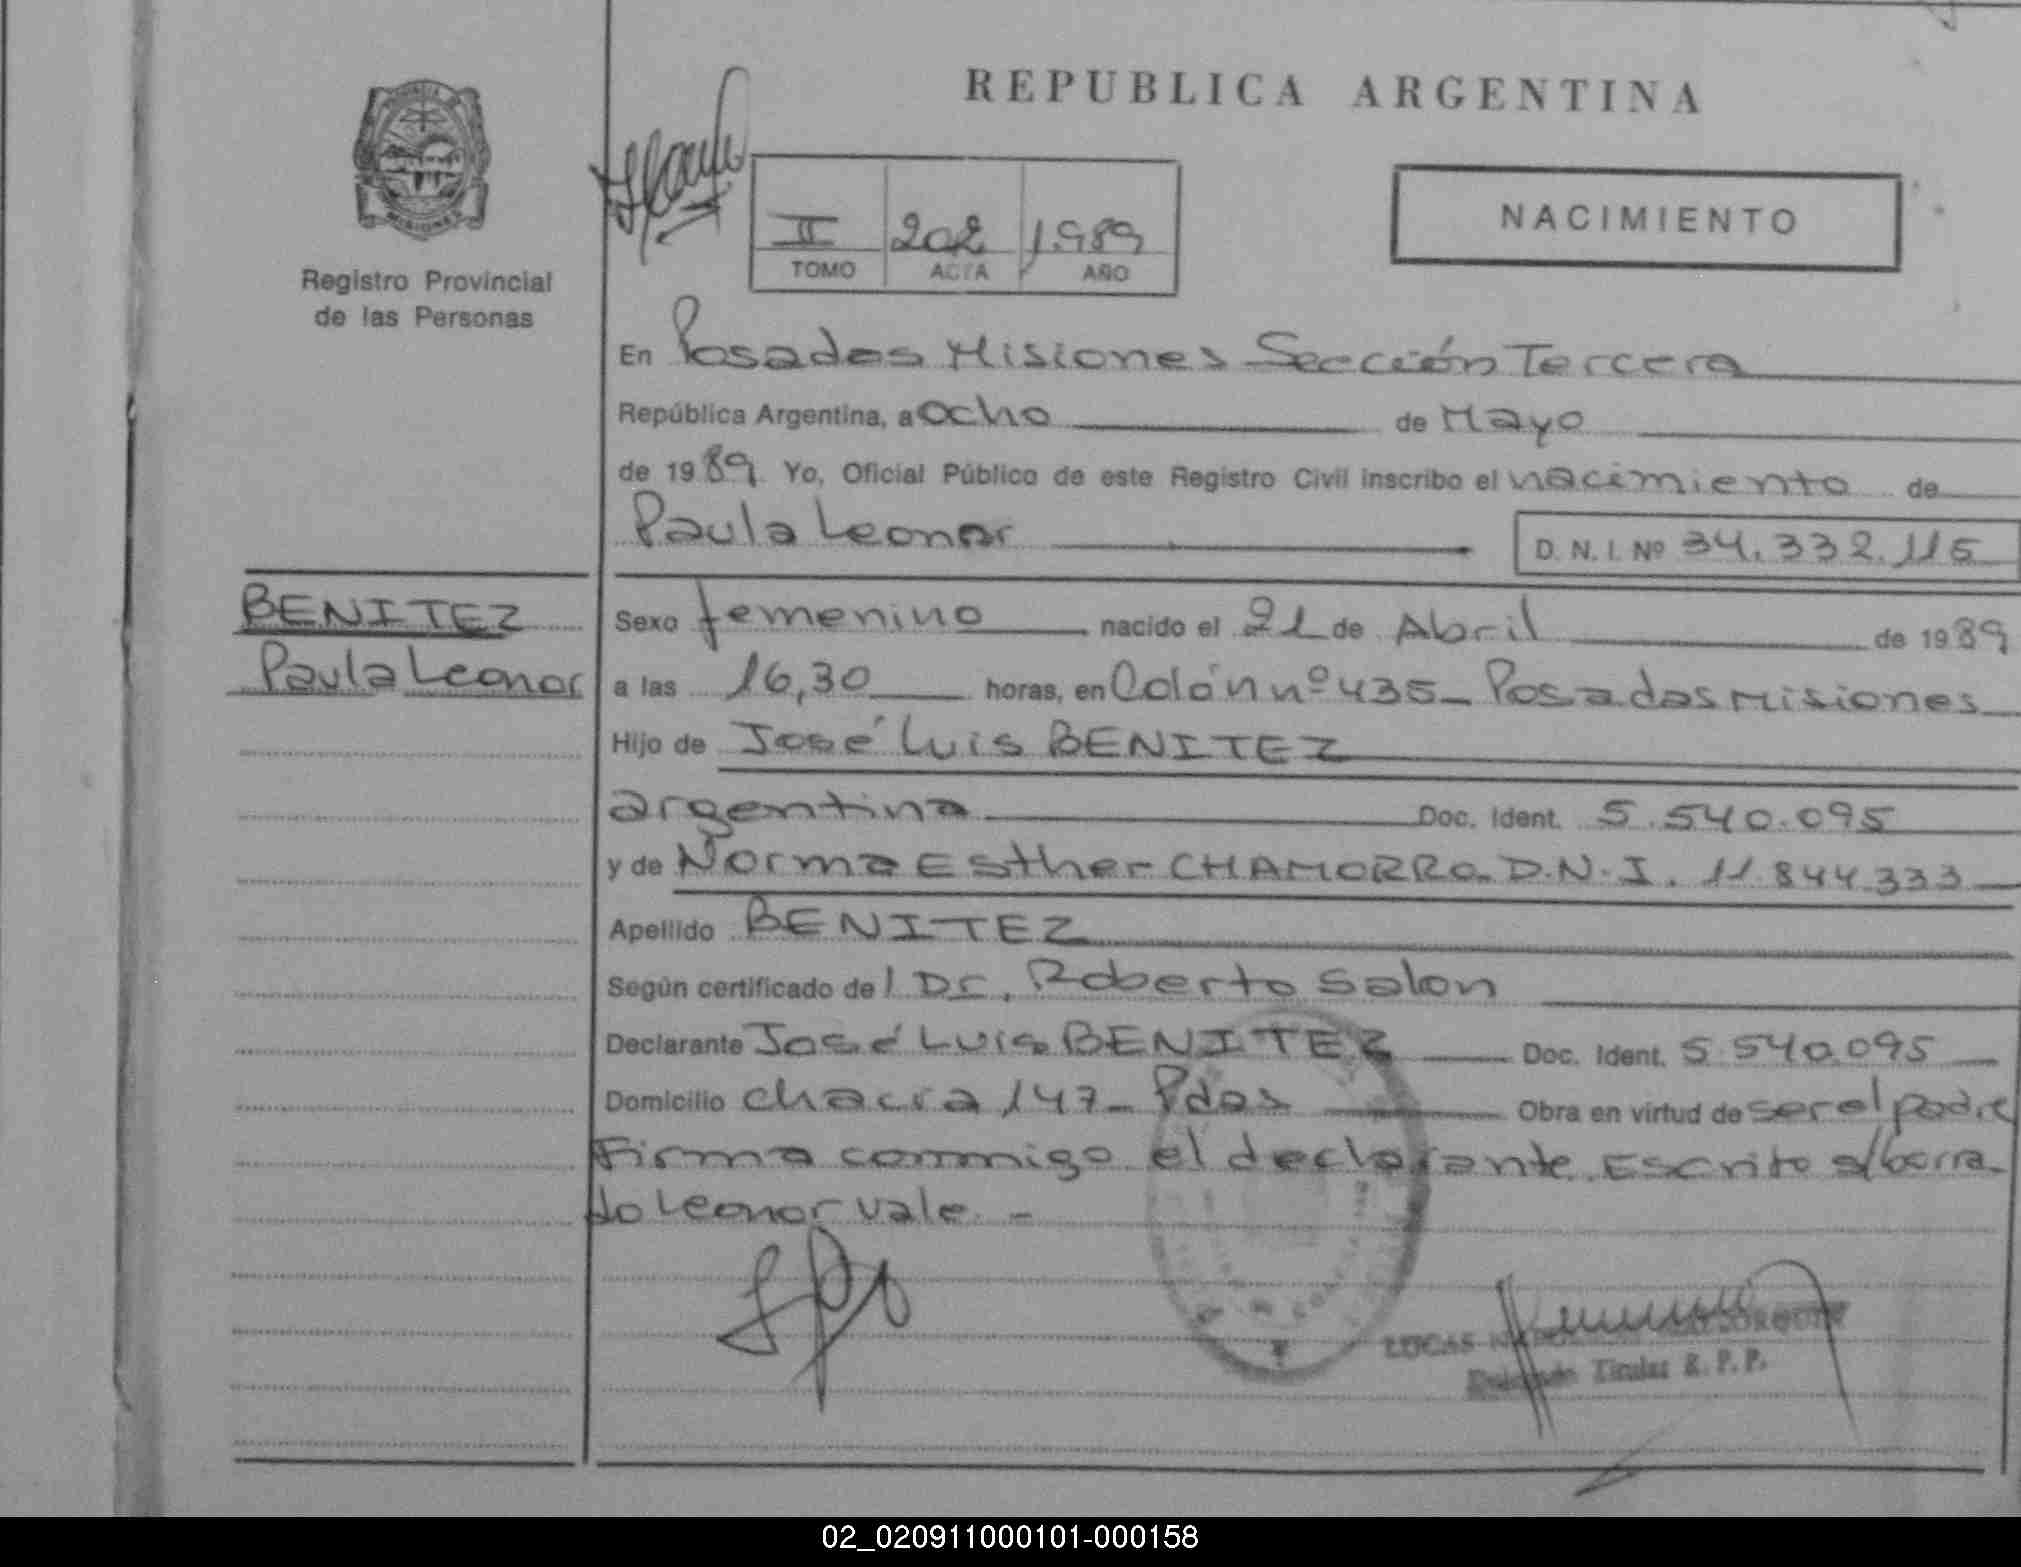 REPUBLICA ARGENTINA
PROVINCIA DE
MISIONES
Registro Provincial
de las Personas
II 202 1989
TOMO ACTA AÑO
NACIMIENTO
En Posadas Misiones Sección Tercera
República Argentina, a ocho de Mayo
de 1989 Yo, Oficial Público de este Registro Civil inscribo el nacimiento de
Paula Leonor D. N. I. Nº 34.332.115
BENITEZ
Paula Leonor
Sexo femenino nacido el 21 de Abril de 1989
a las 16,30 horas, en Colón nº 435_ Posadas Misiones
Hijo de José Luis BENITEZ
argentina Doc. Ident. 5.540.095
y de Norma Esther CHAMORRO. D.N.I. 11.844.333
Apellido BENITEZ
Según certificado del Dr. Roberto Salon
Declarante José Luis BENITEZ Doc. Ident. 5.540.095
Domicilio chacra 147_ Pdas Obra en virtud de ser el padre
Firma conmigo el declarante. Escrito s/borra
do Leonor vale. -
LUCAS
Titular R. P. P.
02_020911000101-000158